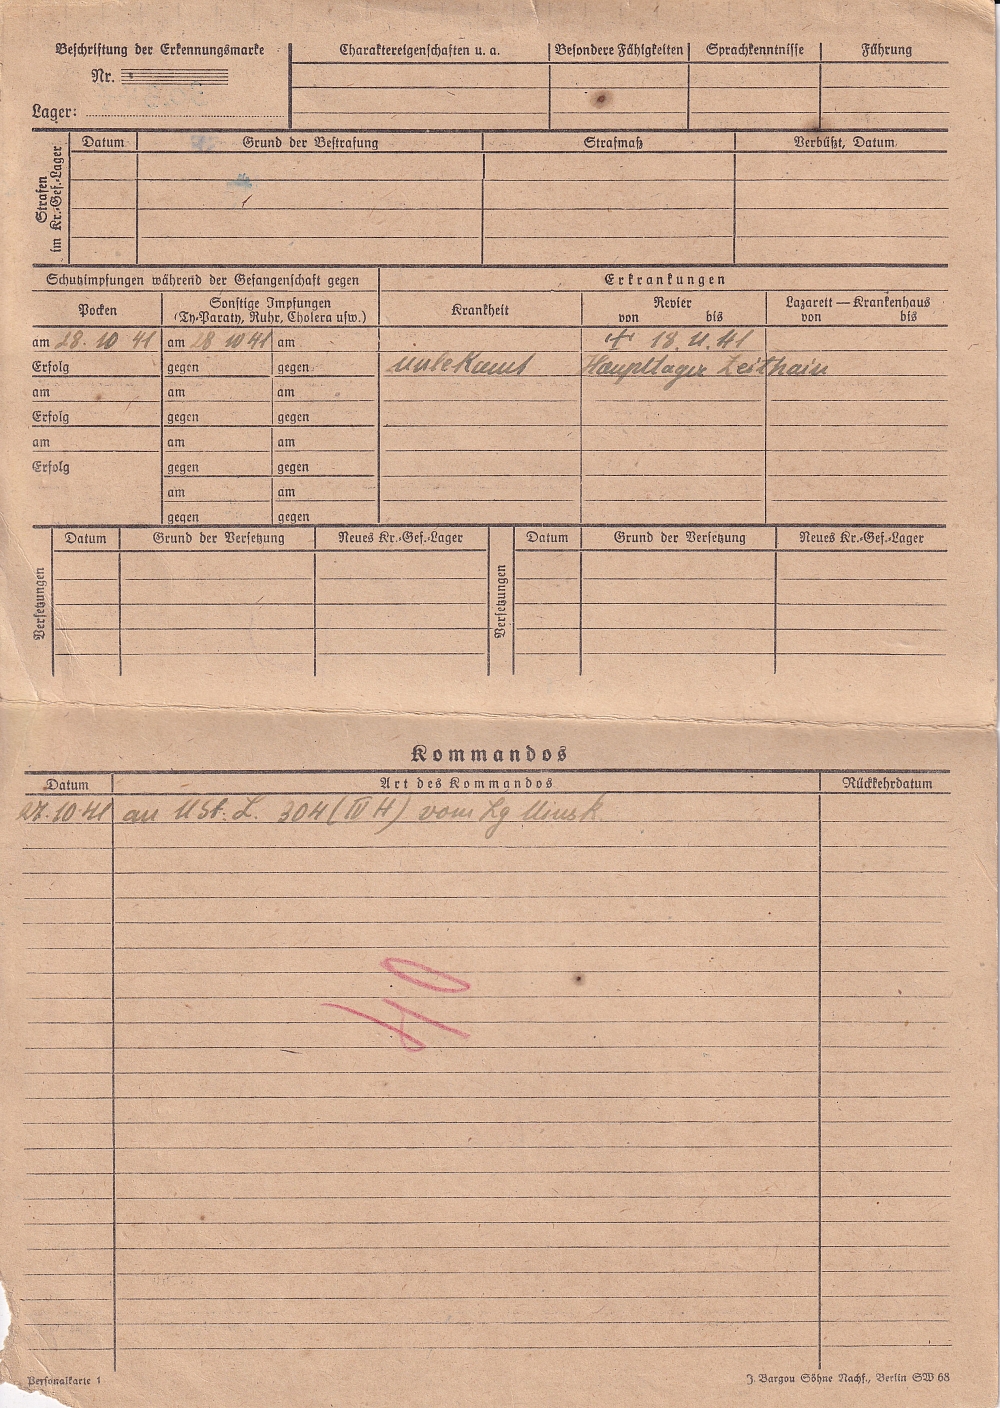 Beschriftung der Erkennungsmarke
Nr.
Lager:
Charaktereigenschaften u. a.
Besondere Fähigkeiten
Sprachkenntnisse
Führung
Strafen im Kr.-Gef.-Lager
Datum
Grund der Bestrafung
Strafmaß
Verbüßt, Datum
Schutzimpfungen während der Gefangenschaft gegen
Erkrankungen
Pocken
Sonstige Impfungen
(Ty.-Paraty, Ruhr, Cholera usw.)
Krankheit
Revier
von bis
Lazarett — Krankenhaus
von bis
am 28. 10 41 am 28 10 41 am
+ 18. 11. 41
Erfolg gegen gegen
unbekannt Hauptlager Zeithain
am am am
Erfolg gegen gegen
am am am
Erfolg gegen gegen
am am
gegen gegen
Versetzungen
Datum Grund der Versetzung Neues Kr.-Gef.-Lager
Versetzungen
Datum Grund der Versetzung Neues Kr.-Gef.-Lager
Kommandos
Datum Art des Kommandos Rückkehrdatum
27.10.41 an M St. L. 304 (IV H) vom Lg Minsk
Personalkarte 1
J. Bargou Söhne Nachf., Berlin SW 68